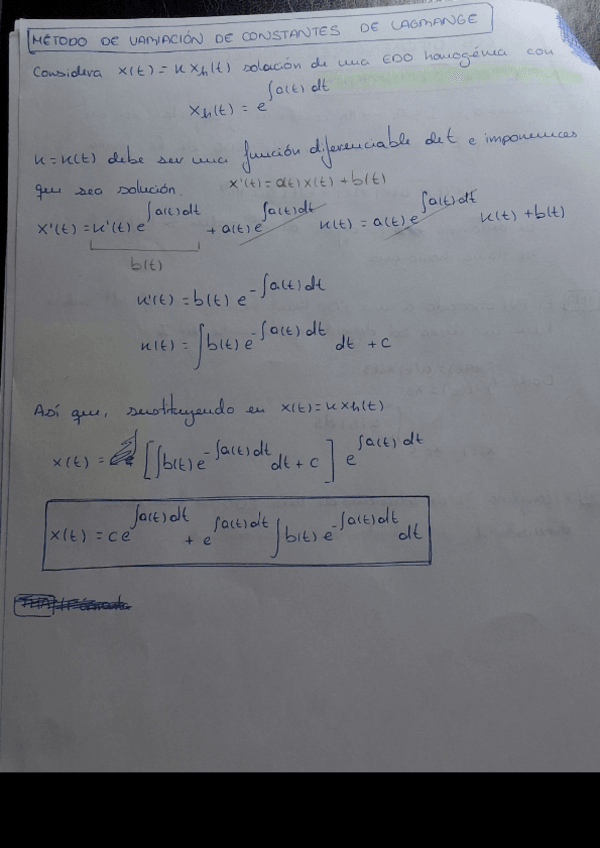 MÉTODO DE VARIACIÓN DE CONSTANTES DE LAGRANGE
Considera x(t) = k xh(t) solución de una EDO homogénea con
xh(t) = e^∫a(t) dt
k = k(t) debe ser una función diferenciable de t e imponemos
que sea solución. x'(t) = a(t) x(t) + b(t)
x'(t) = k'(t) e^∫a(t)dt + a(t) e^∫a(t)dt k(t) = a(t) e^∫a(t)dt k(t) + b(t)
b(t)
k'(t) = b(t) e^-∫a(t) dt
k(t) = ∫b(t) e^-∫a(t) dt dt + c
Así que, sustituyendo en x(t) = k xh(t)
x(t) = [∫b(t) e^-∫a(t)dt dt + c] e^∫a(t) dt
x(t) = c e^∫a(t)dt + e^∫a(t)dt ∫b(t) e^-∫a(t)dt dt